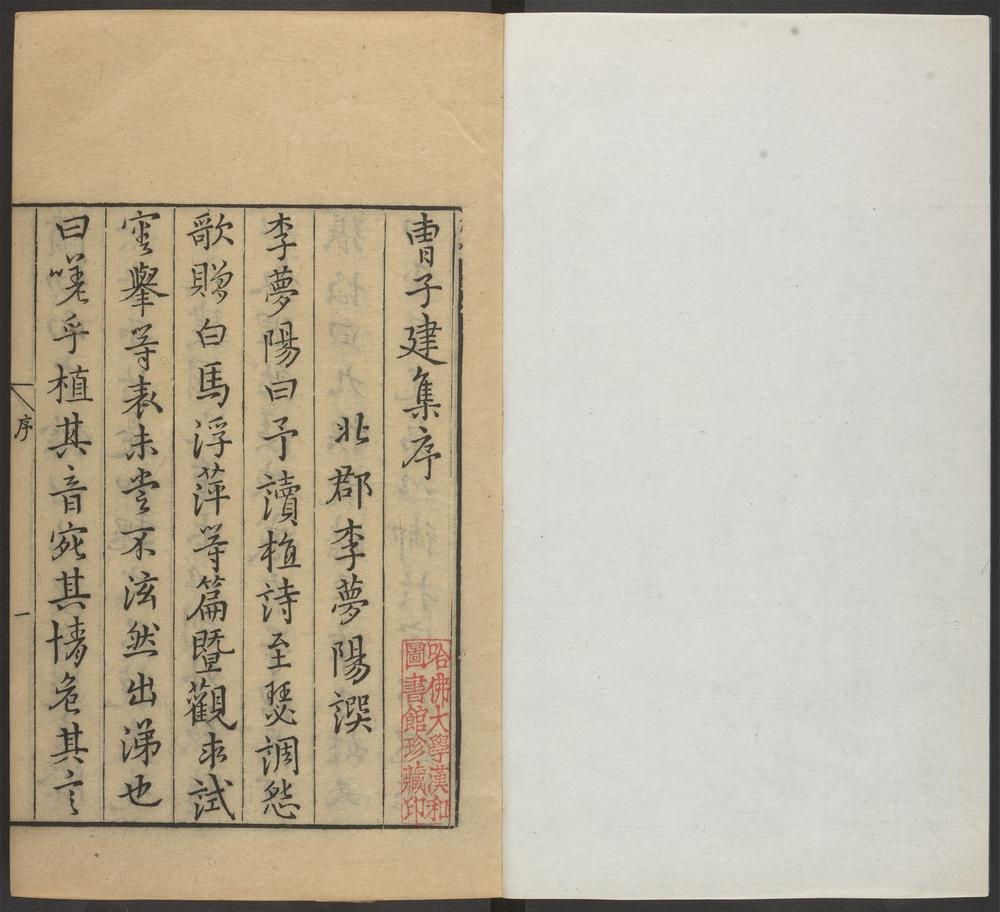 曹子建集序
北郡李夢陽譔
李夢陽曰予讀植詩至瑟調怨
歌贈白馬浮萍等篇暨觀求試
審舉等表未嘗不泫然出涕也
曰嗟乎植其音宛其情危其言
序
一
哈佛大學漢和
圖書館珍藏印